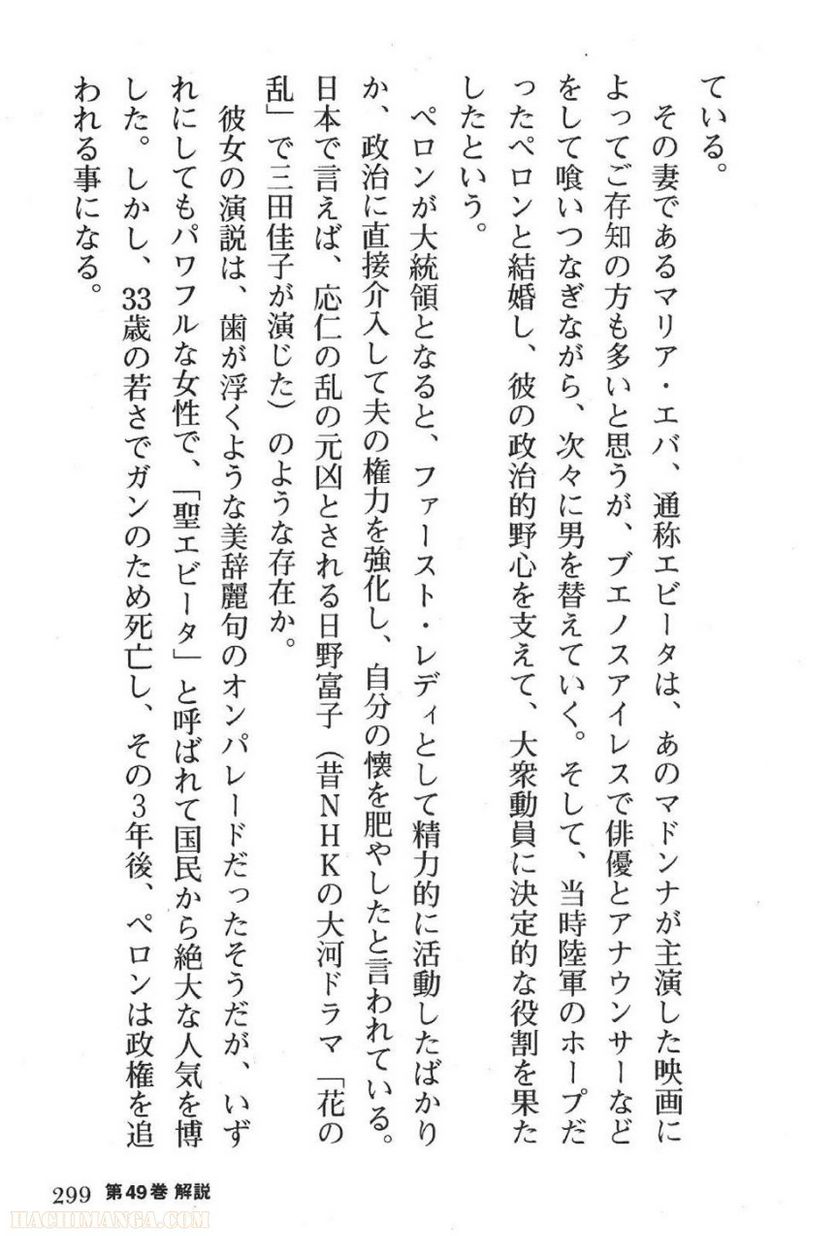 ている。
　その妻であるマリア・エバ、通称エビータは、あのマドンナが主演した映画に
よってご存知の方も多いと思うが、ブエノスアイレスで俳優とアナウンサーなど
をして喰いつなぎながら、次々に男を替えていく。そして、当時陸軍のホープだ
ったペロンと結婚し、彼の政治的野心を支えて、大衆動員に決定的な役割を果た
したという。
　ペロンが大統領となると、ファースト・レディとして精力的に活動したばかり
か、政治に直接介入して夫の権力を強化し、自分の懐を肥やしたと言われている。
日本で言えば、応仁の乱の元凶とされる日野富子（昔NHKの大河ドラマ「花の
乱」で三田佳子が演じた）のような存在か。
　彼女の演説は、歯が浮くような美辞麗句のオンパレードだったそうだが、いず
れにしてもパワフルな女性で、「聖エビータ」と呼ばれて国民から絶大な人気を博
した。しかし、33歳の若さでガンのため死亡し、その3年後、ペロンは政権を追
われる事になる。
299 第49巻 解説
HACHIMANGA.COM